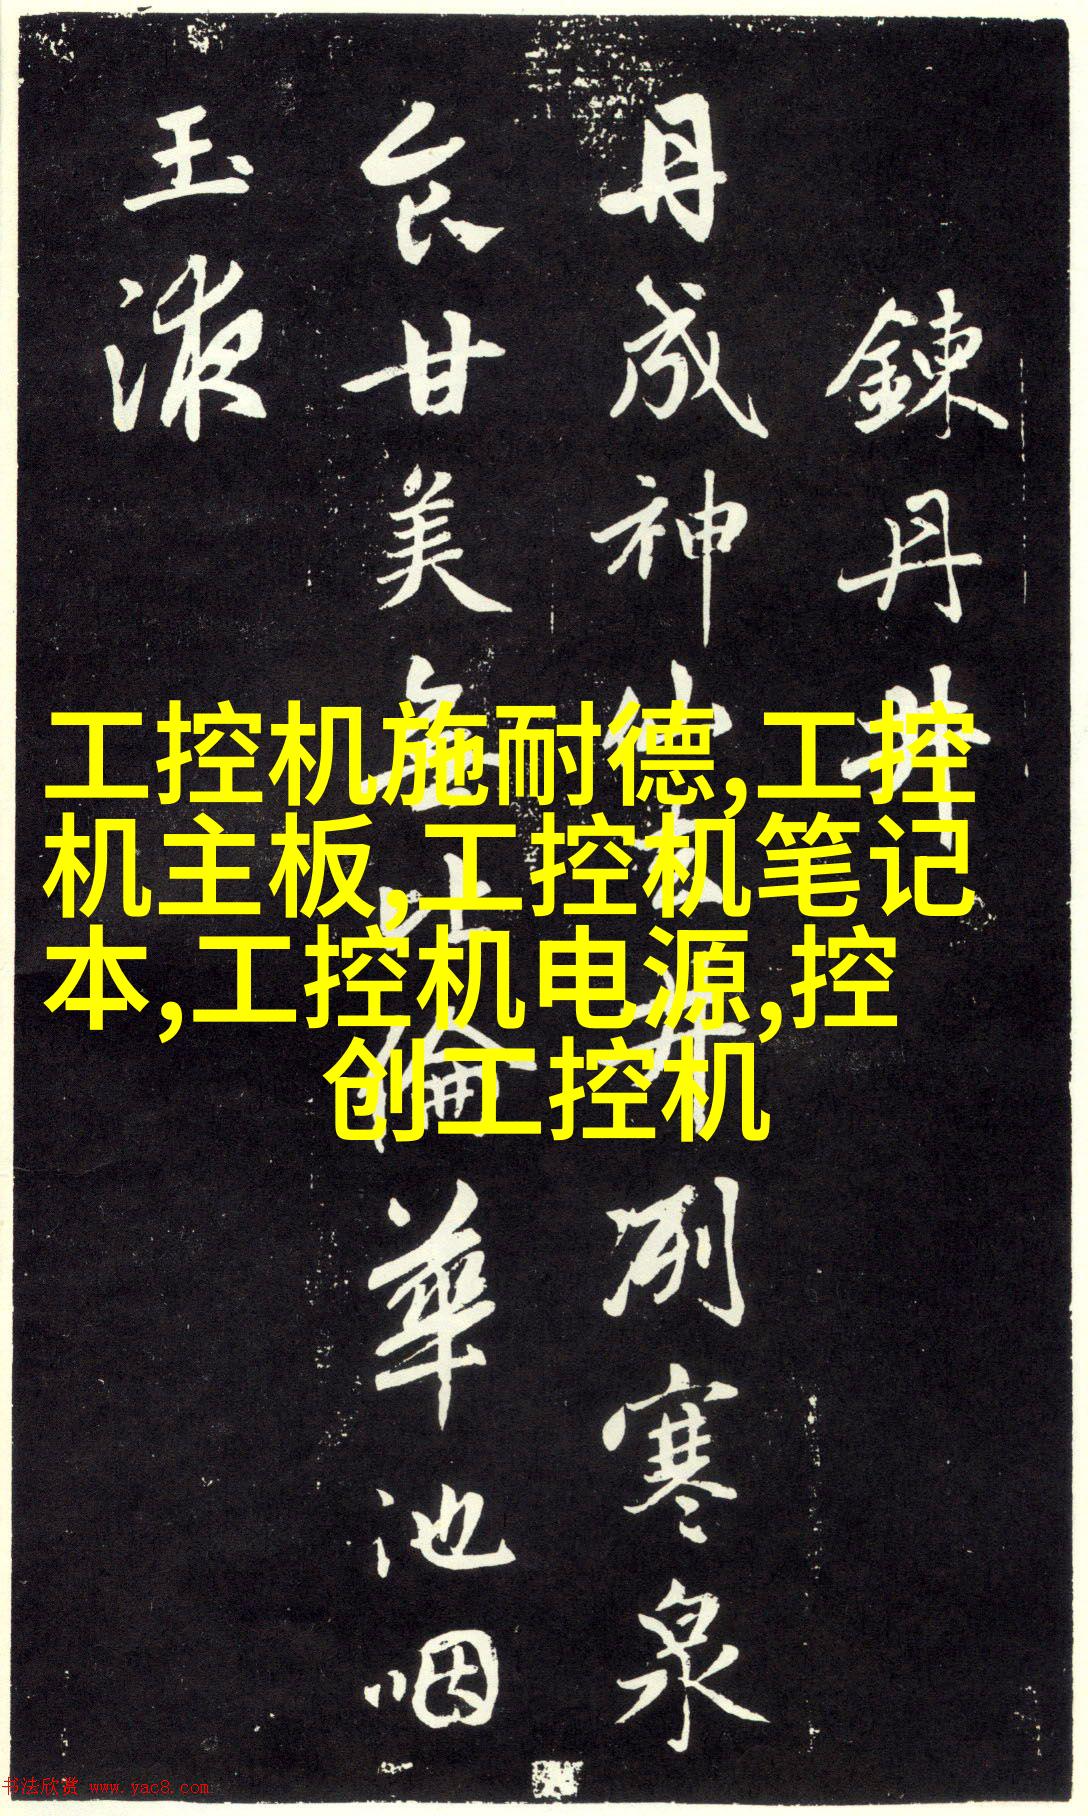 鍊丹井
丹成神仙去井冽寒泉
食甘美無比倫華池咽
玉液
工控机施耐德,工控
机主板,工控机笔记
本,工控机电源,控
创工控机
书法欣赏 www.yac8.com